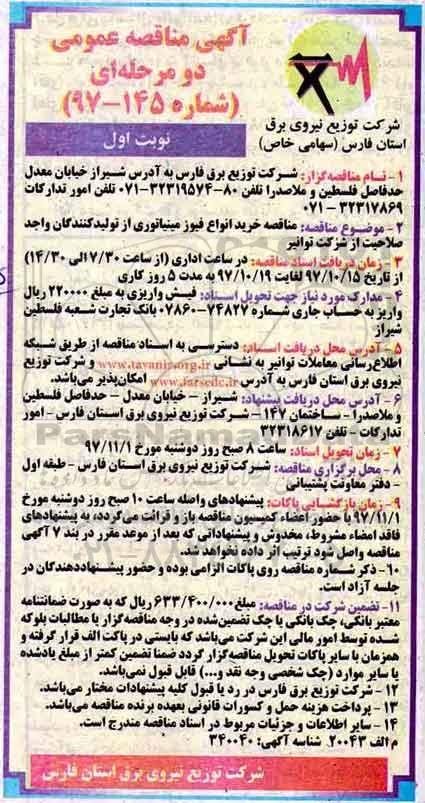 آگهی مناقصه عمومی
دو مرحله‌ای
(شماره ۱۴۵-۹۷)
نوبت اول
شرکت توزیع نیروی برق
استان فارس (سهامی خاص)
۱- نام مناقصه‌گزار: شرکت توزیع برق فارس به آدرس شیراز خیابان معدل
حدفاصل فلسطین و ملاصدرا تلفن ۸۰-۳۲۳۱۹۵۷۴-۰۷۱ تلفن امور تدارکات
۳۲۳۱۷۸۶۹-۰۷۱
۲- موضوع مناقصه: مناقصه خرید انواع فیوز مینیاتوری از تولیدکنندگان واجد
صلاحیت از شرکت توانیر
۳- زمان دریافت اسناد مناقصه: در ساعت اداری (از ساعت ۷/۳۰ الی ۱۴/۳۰)
از تاریخ ۹۷/۱۰/۱۵ لغایت ۹۷/۱۰/۱۹ به مدت ۵ روز کاری
۴- مدارک مورد نیاز جهت تحویل اسناد: فیش واریزی به مبلغ ۲۲۰۰۰۰ ریال
واریز به حساب جاری شماره ۷۴۸۲۷-۰۷۸۶۰ بانک تجارت شعبه فلسطین
شیراز
۵- آدرس محل دریافت اسناد: دسترسی به اسناد مناقصه از طریق شبکه
اطلاع‌رسانی معاملات توانیر به نشانی www.tavanir.org.ir و شرکت توزیع
نیروی برق استان فارس به آدرس www.farsedc.ir امکان‌پذیر می‌باشد.
۶- آدرس محل دریافت پیشنهاد: شیراز - خیابان معدل - حدفاصل فلسطین
و ملاصدرا - ساختمان ۱۴۷ - شرکت توزیع نیروی برق استان فارس - امور
تدارکات - تلفن ۳۲۳۱۸۶۱۷
۷- زمان تحویل اسناد: ساعت ۸ صبح روز دوشنبه مورخ ۹۷/۱۱/۱
۸- محل برگزاری مناقصه: شرکت توزیع نیروی برق استان فارس - طبقه اول
- دفتر معاونت پشتیبانی
۹- زمان بازگشایی پاکات: پیشنهادهای واصله ساعت ۱۰ صبح روز دوشنبه مورخ
۹۷/۱۱/۱ با حضور اعضاء کمیسیون مناقصه باز و قرائت می‌گردد، به پیشنهادهای
فاقد امضاء مشروط، مخدوش و پیشنهاداتی که بعد از موعد مقرر در بند ۷ آگهی
مناقصه واصل شود ترتیب اثر داده نخواهد شد.
۱۰- ذکر شماره مناقصه روی پاکات الزامی بوده و حضور پیشنهاددهندگان در
جلسه آزاد است.
۱۱- تضمین شرکت در مناقصه: مبلغ ۶۳۳/۴۰۰/۰۰۰ ریال که به صورت ضمانتنامه
معتبر بانکی، چک بانکی یا چک تضمین‌شده در وجه مناقصه‌گزار یا مطالبات بلوکه
شده توسط امور مالی این شرکت می‌باشد که بایستی در پاکت الف قرار گرفته و
همزمان با سایر پاکات تحویل مناقصه‌گزار گردد ضمنا تضمین کمتر از مبلغ یادشده
یا سایر موارد (چک شخصی وجه نقد و...) قابل قبول نمی‌باشد.
۱۲- شرکت توزیع برق فارس در رد یا قبول کلیه پیشنهادات مختار می‌باشد.
۱۳- پرداخت هزینه حمل و کسورات قانونی بعهده برنده مناقصه می‌باشد.
۱۴- سایر اطلاعات و جزئیات مربوط در اسناد مناقصه مندرج است.
م الف ۲۰۰۴۳ شناسه آگهی: ۳۴۰۰۴۰
شرکت توزیع نیروی برق استان فارس